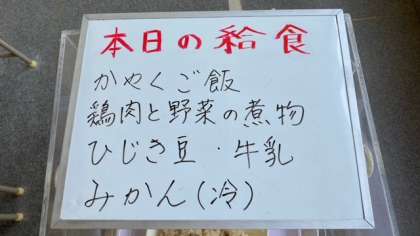 本日の給食
かやくご飯
鶏肉と野菜の煮物
ひじき豆・牛乳
みかん(冷)